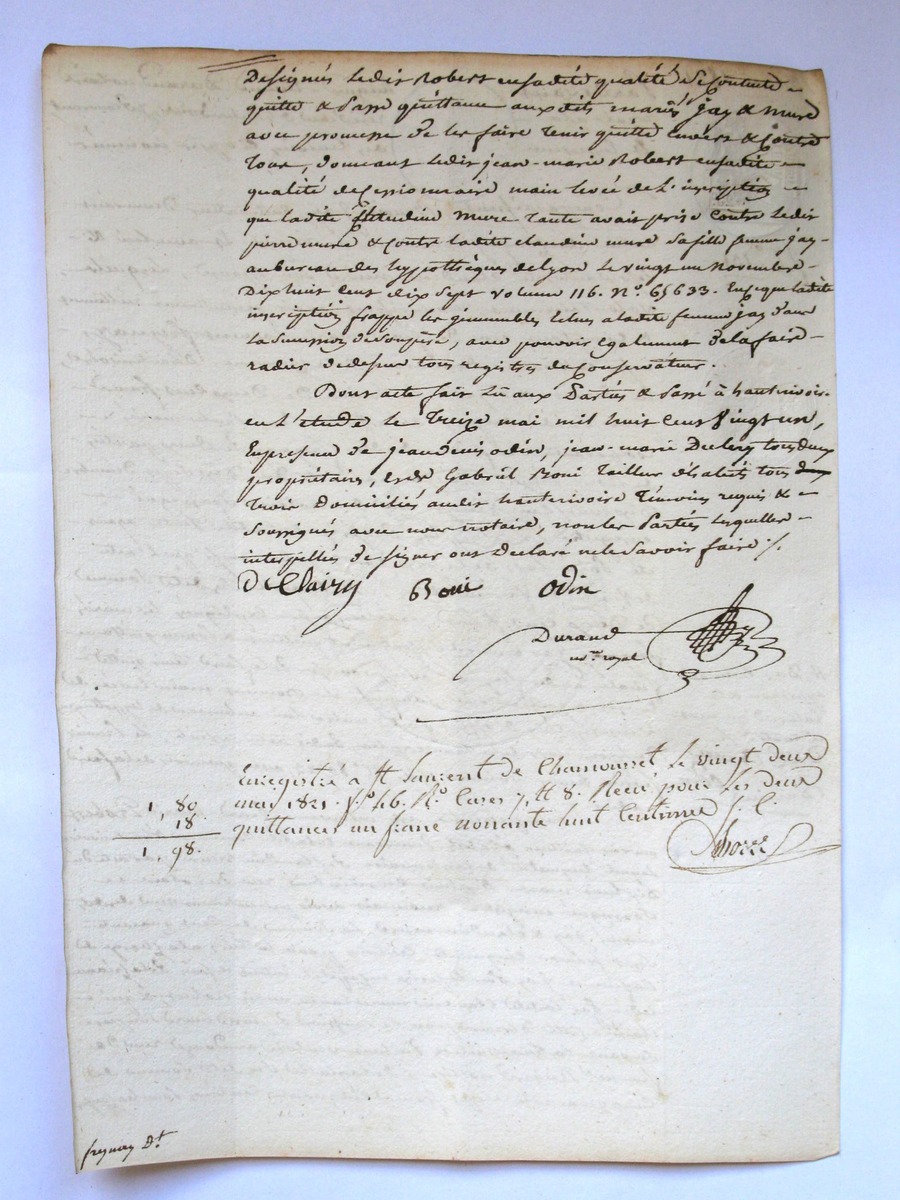 Designés ledit Robert en sadite qualité se Contente
quitte & passe quittance aux dits mariés jay & mure
avec promesse de les faire tenir quitte envers & Contre
tous, donnant ledit jean-marie Robert en sadite
qualité de Cessionnaire main levée de l'inscription
que ladite mure tante avait prise Contre ledit
pierre mure & Contre ladite claudine mure sa fille femme jay
au bureau des hypothèques de lyon le vingt un Novembre
Dix huit Cent dix Sept volume 116. N.o 65633. En ce que ladite
inscription frappe les immeubles Echus a ladite femme jay dans
la Succession de Son père, avec pouvoir egalement de la faire
radier de dessus tous registres du Conservateur.
Dont acte fait lu aux Parties & Passé à hauterivoire
en l'etude le treize mai mil huit Cent Vingt un,
En presence de jean denis odin, jean-marie Declery tous deux
propriétaires, & de Gabriel Boni tailleur d'habits tous
trois Domiciliés audit hauterivoire Témoins requis &
Soussignés avec nous notaire, non les Parties lesquelles
interpellés de signer ont Déclaré ne le Savoir faire ./.
DeClairy Boni odin
Durand
no.re royal
Enregistré a St Laurent de Chamousset le vingt deux
mai 1821. f.o 46. R.o Cases 7, & 8. Recu pour les deux
quittances un franc nonante huit Centimes
1, 80
18
1, 98.